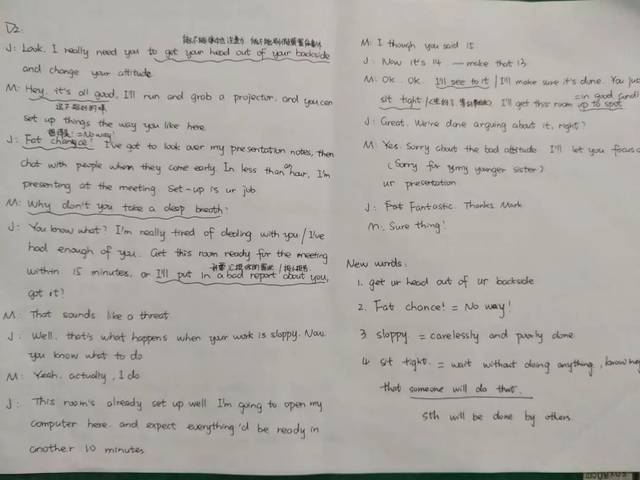 D2:
J: Look, I really need you to get your head out of your backside
and change your attitude.
M: Hey, it's all good. I'll run and grab a projector, and you can
这不挺好的嘛
set up things the way you like here.
= No way!
J: Fat chance! I've got to look over my presentation notes, then
chat with people when they come early. In less than an hour, I'm
presenting at the meeting. Set-up is ur job.
M: Why don't you take a deep breath?
J: You know what? I'm really tired of dealing with you / I've
had enough of you. Get this room ready for the meeting
within 15 minutes, or I'll put in a bad report about you,
got it?
M: That sounds like a threat.
J: Well, that's what happens when your work is sloppy. Now
you know what to do
M: Yeah, actually, I do
J: This room's already set up well I'm going to open my
computer here. and expect everything'd be ready in
another 10 minutes
M: I though you said 15
J: Now it's 14 — make that 13
M: Ok. Ok. I'll see to it / I'll make sure it's done. You just
= in good condi
sit tight / I'll get this room up to spot
J: Great. We're done arguing about it, right?
M: Yes. Sorry about the bad attitude I'll let you focus o
(Sorry for my younger sister)
ur presentation
J: Fantastic. Thanks Mark
M: Sure thing!
New words:
1. get ur head out of ur backside
2. Fat chance! = No way!
3 sloppy = carelessly and poorly done
4 sit tight. = wait without doing anything, know
that someone will do that.
sth will be done by others.